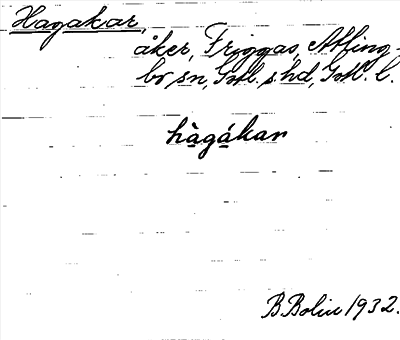 Hagakar,
åker, Friggas, Atling-
bo sn, Gotl. s. hd, Gotl. l.
hàgákan
B Bolin 1932.